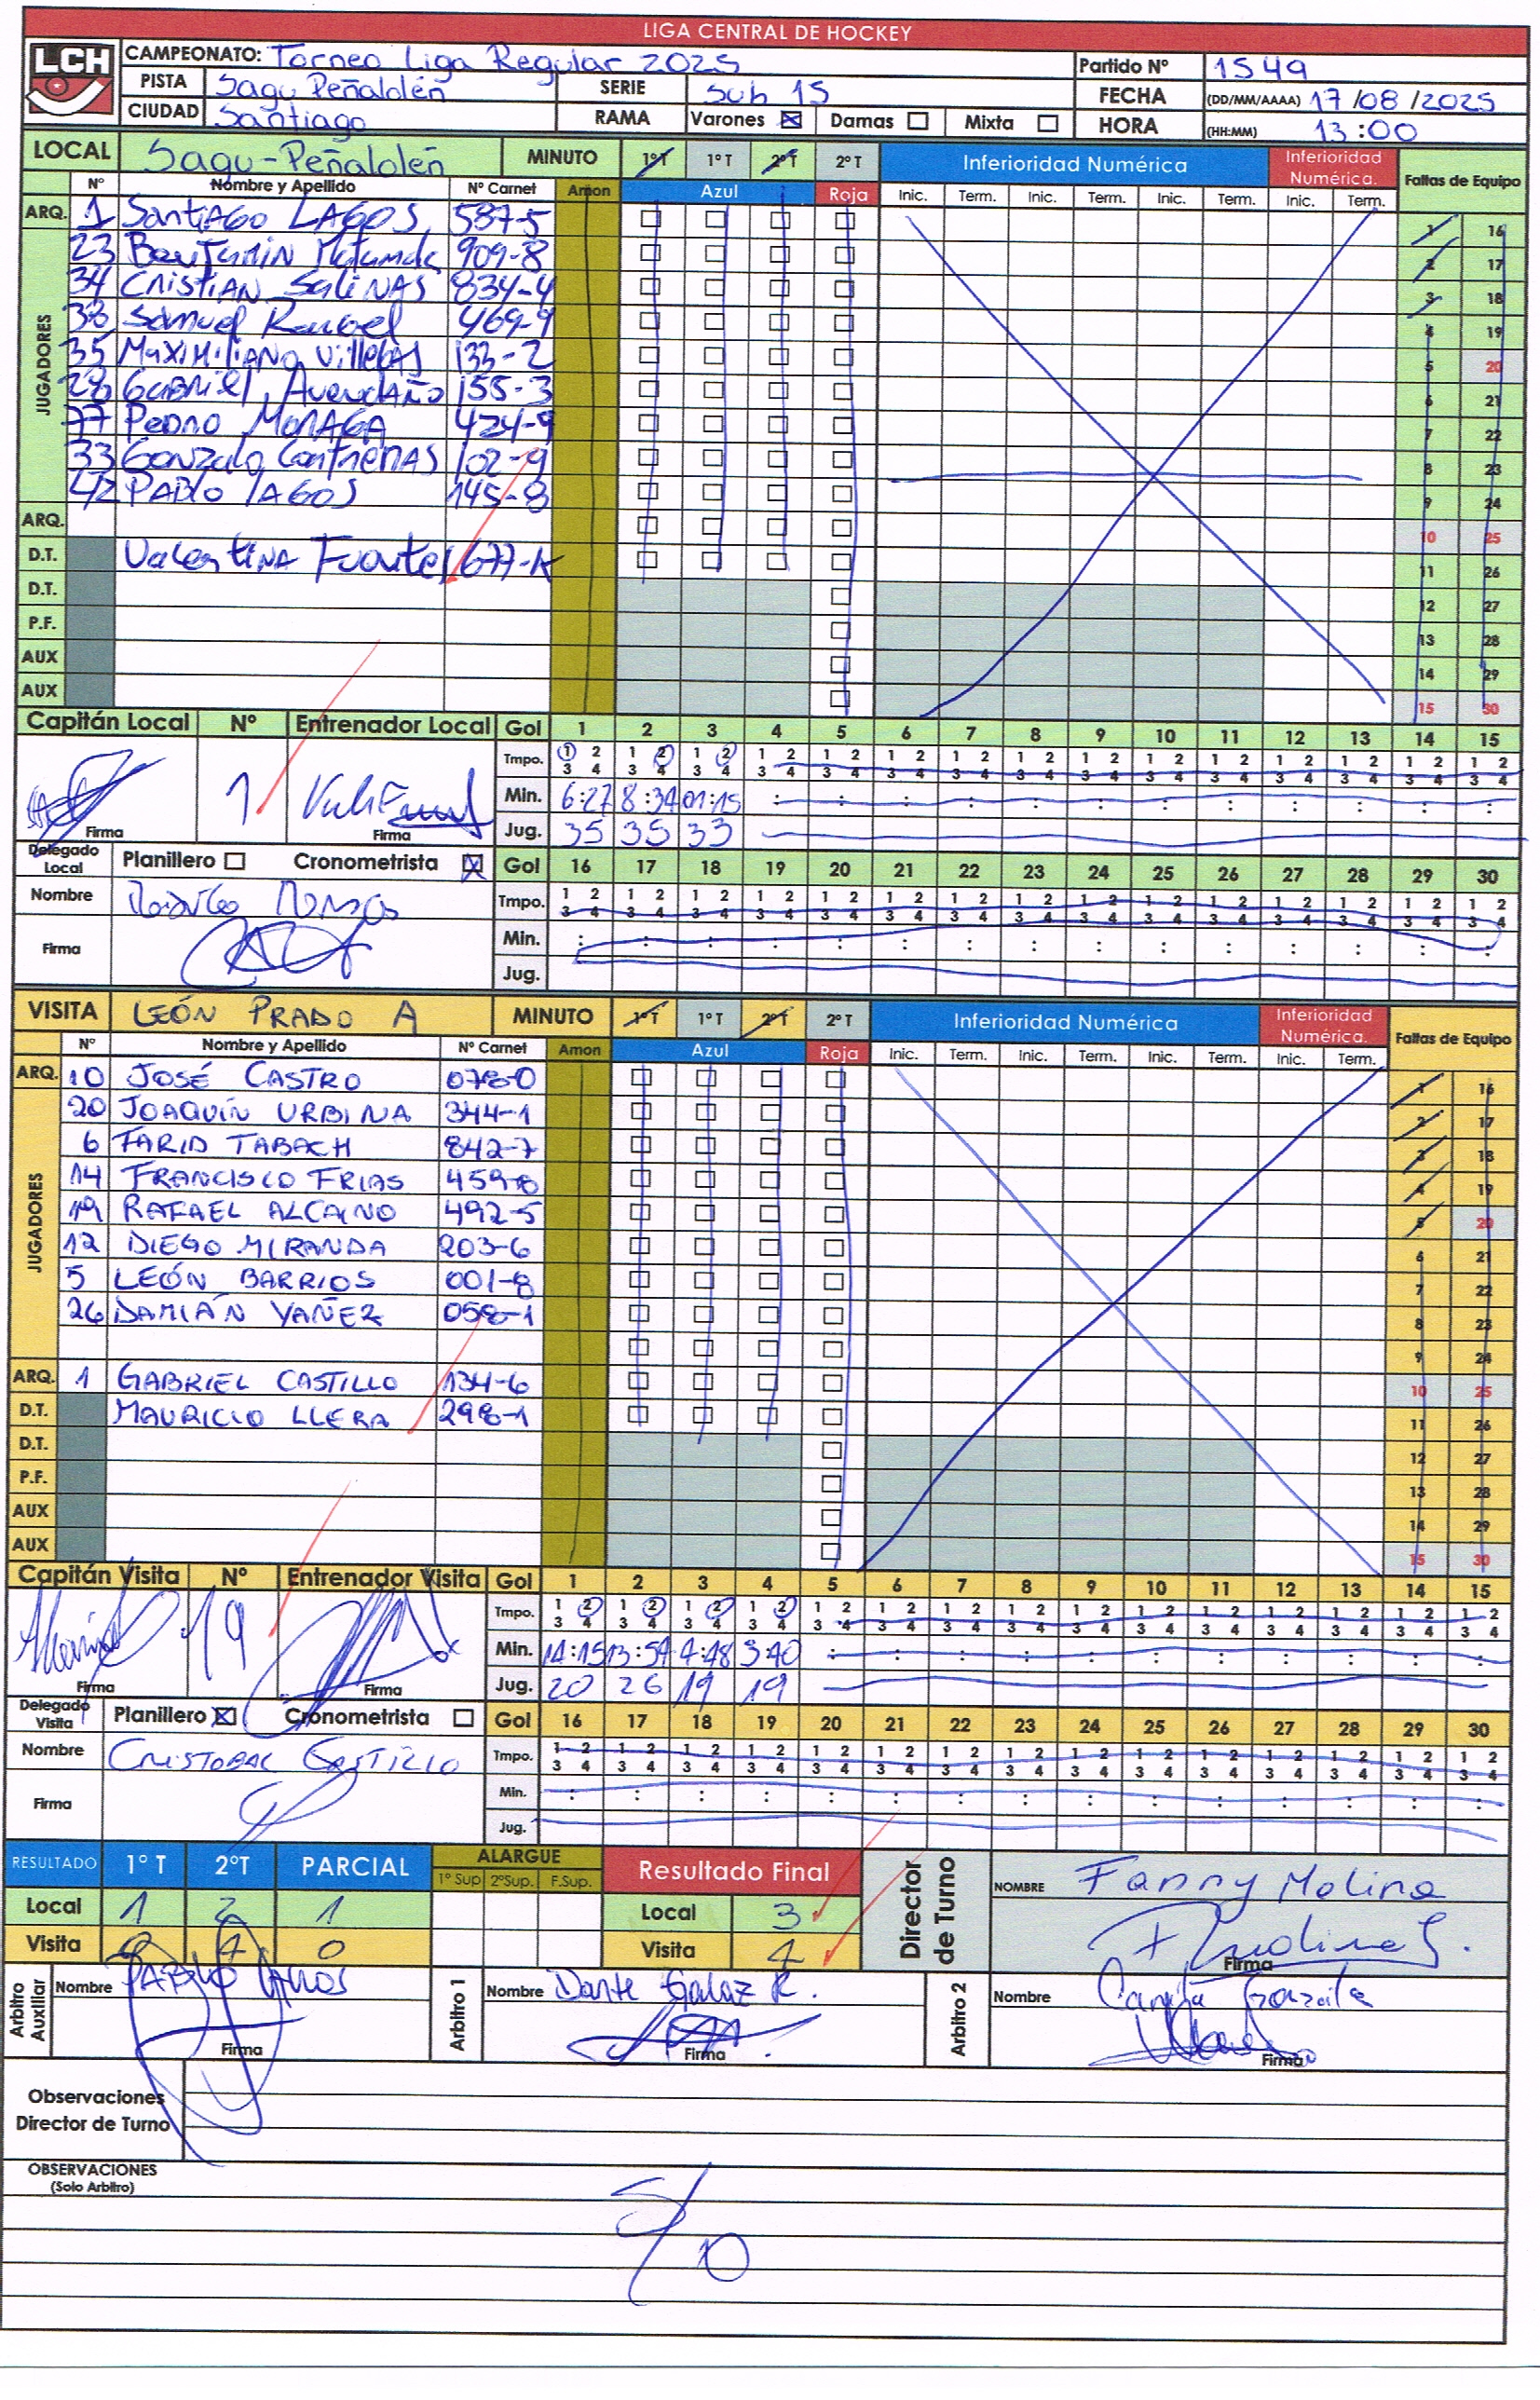 LIGA CENTRAL DE HOCKEY
LCH
CAMPEONATO: Torneo Liga Regular 2025 Partido Nº 1549
PISTA Sagu Peñalolén SERIE Sub 15 FECHA (DD/MM/AAAA) 17/08/2025
CIUDAD Santiago RAMA Varones Damas Mixta HORA (HH:MM) 13:00
LOCAL Sagu-Peñalolén MINUTO 1º T 1º T 2º T 2º T Inferioridad Numérica Inferioridad Numérica. Faltas de Equipo
Nº Nombre y Apellido Nº Carnet Amon Azul Roja Inic. Term. Inic. Term. Inic. Term. Inic. Term.
ARQ. 1 SantiAGO LAGOS 587-5 1 16
JUGADORES
23 BenJamin 909-8 2 17
34 CRistiAN SaliNAS 834-4 3 18
38 Samuel Rangel 469-9 4 19
35 MaxiMiliANO Villegas 133-2 5 20
28 GabRiel AvendaÑo 155-3 6 21
77 PedRO MoRAGA 424-9 7 22
33 Gonzalo ContReRAS 102-9 8 23
42 PABlo lAGOS 145-8 9 24
ARQ. 10 25
D.T. ValentiNA Fuentes 677-K 11 26
D.T. 12 27
P.F. 13 28
AUX 14 29
AUX 15 30
Capitán Local Nº Entrenador Local Gol 1 2 3 4 5 6 7 8 9 10 11 12 13 14 15
Tmpo. 1 2 3 4 1 2 3 4 1 2 3 4 1 2 3 4 1 2 3 4 1 2 3 4 1 2 3 4 1 2 3 4 1 2 3 4 1 2 3 4 1 2 3 4 1 2 3 4 1 2 3 4 1 2 3 4 1 2 3 4
1 Min. 6:27 8:34 01:15
Firma Firma Jug. 35 35 33
Delegado Local Planillero Cronometrista Gol 16 17 18 19 20 21 22 23 24 25 26 27 28 29 30
Nombre Tmpo. 1 2 3 4 1 2 3 4 1 2 3 4 1 2 3 4 1 2 3 4 1 2 3 4 1 2 3 4 1 2 3 4 1 2 3 4 1 2 3 4 1 2 3 4 1 2 3 4 1 2 3 4 1 2 3 4 1 2 3 4
Firma Min.
Jug.
VISITA LEÓN PRADO A MINUTO 1º T 1º T 2º T 2º T Inferioridad Numérica Inferioridad Numérica. Faltas de Equipo
Nº Nombre y Apellido Nº Carnet Amon Azul Roja Inic. Term. Inic. Term. Inic. Term. Inic. Term.
ARQ. 10 JOSÉ CASTRO 078-0 1 16
JUGADORES
20 JOAQUÍN URBINA 344-1 2 17
6 FARID TABACH 842-7 3 18
14 FRANCISCO FRIAS 459-8 4 19
19 RAFAEL ALCAINO 492-5 5 20
12 DIEGO MIRANDA 203-6 6 21
5 LEÓN BARRIOS 001-8 7 22
26 DAMIÁN YAÑEZ 058-1 8 23
9 24
ARQ. 1 GABRIEL CASTILLO 134-6 10 25
D.T. MAURICIO LLERA 298-1 11 26
D.T. 12 27
P.F. 13 28
AUX 14 29
AUX 15 30
Capitán Visita Nº Entrenador Visita Gol 1 2 3 4 5 6 7 8 9 10 11 12 13 14 15
Tmpo. 1 2 3 4 1 2 3 4 1 2 3 4 1 2 3 4 1 2 3 4 1 2 3 4 1 2 3 4 1 2 3 4 1 2 3 4 1 2 3 4 1 2 3 4 1 2 3 4 1 2 3 4 1 2 3 4 1 2 3 4
19 Min. 14:15 13:54 4:48 3:40
Firma Firma Jug. 20 26 19 19
Delegado Visita Planillero Cronometrista Gol 16 17 18 19 20 21 22 23 24 25 26 27 28 29 30
Nombre CRISTOBAL CASTILLO Tmpo. 1 2 3 4 1 2 3 4 1 2 3 4 1 2 3 4 1 2 3 4 1 2 3 4 1 2 3 4 1 2 3 4 1 2 3 4 1 2 3 4 1 2 3 4 1 2 3 4 1 2 3 4 1 2 3 4 1 2 3 4
Firma Min.
Jug.
RESULTADO 1º T 2ºT PARCIAL ALARGUE Resultado Final
1º Sup 2ºSup. F.Sup.
Local 1 2 1 Local 3
Visita 0 4 0 Visita 4
Director de Turno NOMBRE Fanny Molina
Firma
Arbitro Auxiliar Nombre PABLO
Firma
Arbitro 1 Nombre Dante Galaz R.
Firma
Arbitro 2 Nombre Camila
Firma
Observaciones
Director de Turno
OBSERVACIONES
(Solo Arbitro)
S/O